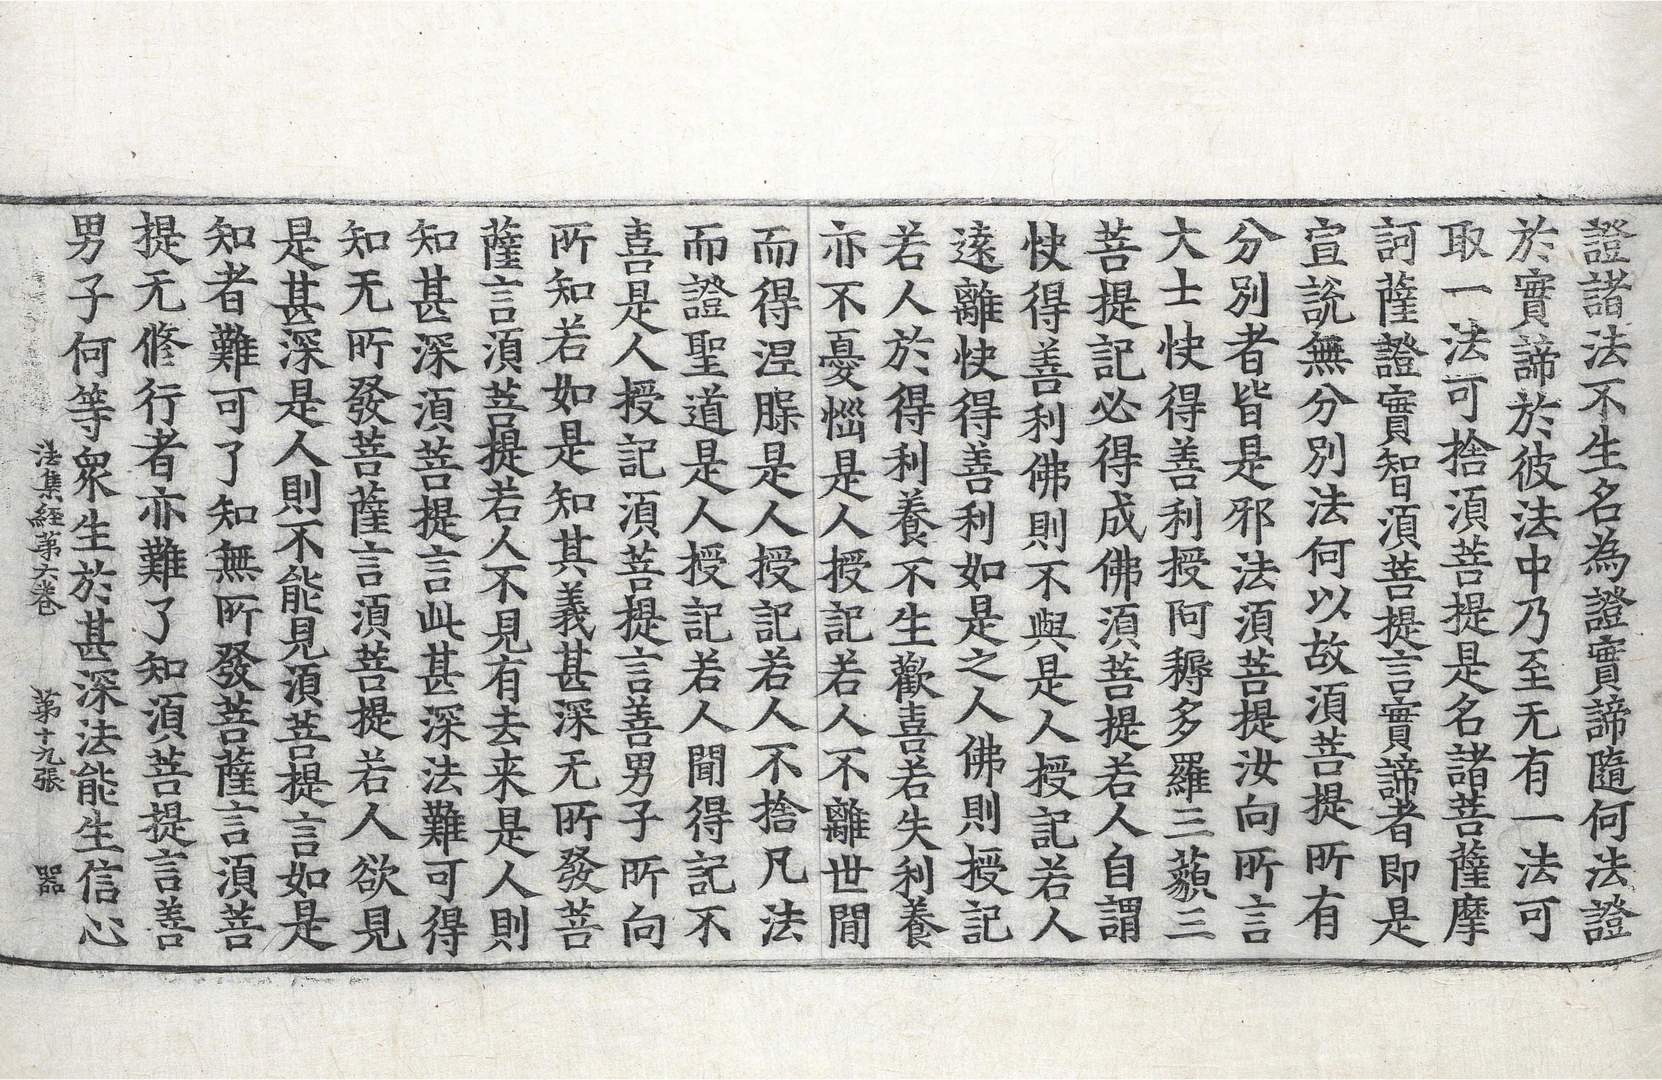 證諸法不生名為證實諦隨何法證
於實諦於彼法中乃至无有一法可
取一法可捨湏菩提是名諸菩薩摩
訶薩證實智湏菩提言實諦者即是
宣說無分別法何以故湏菩提所有
分別者皆是邪法湏菩提汝向所言
大士快得善利授阿耨多羅三藐三
菩提記必得成佛湏菩提若人自謂
快得善利佛則不與是人授記若人
遠離快得善利如是之人佛則授記
若人於得利養不生歡喜若失利養
亦不憂惱是人授記若人不離世間
而得涅槃是人授記若人不捨凡法
而證聖道是人授記若人聞得記不
喜是人授記湏菩提言善男子所向
所知若如是知其義甚深无所發菩
薩言湏菩提若人不見有去来是人則
知甚深湏菩提言此甚深法難可得
知无所發菩薩言湏菩提若人欲見
是甚深是人則不能見湏菩提言如是
知者難可了知無所發菩薩言湏菩
提无修行者亦難了知湏菩提言善
男子何等衆生於甚深法能生信心
法集經第六卷 第十九張 器